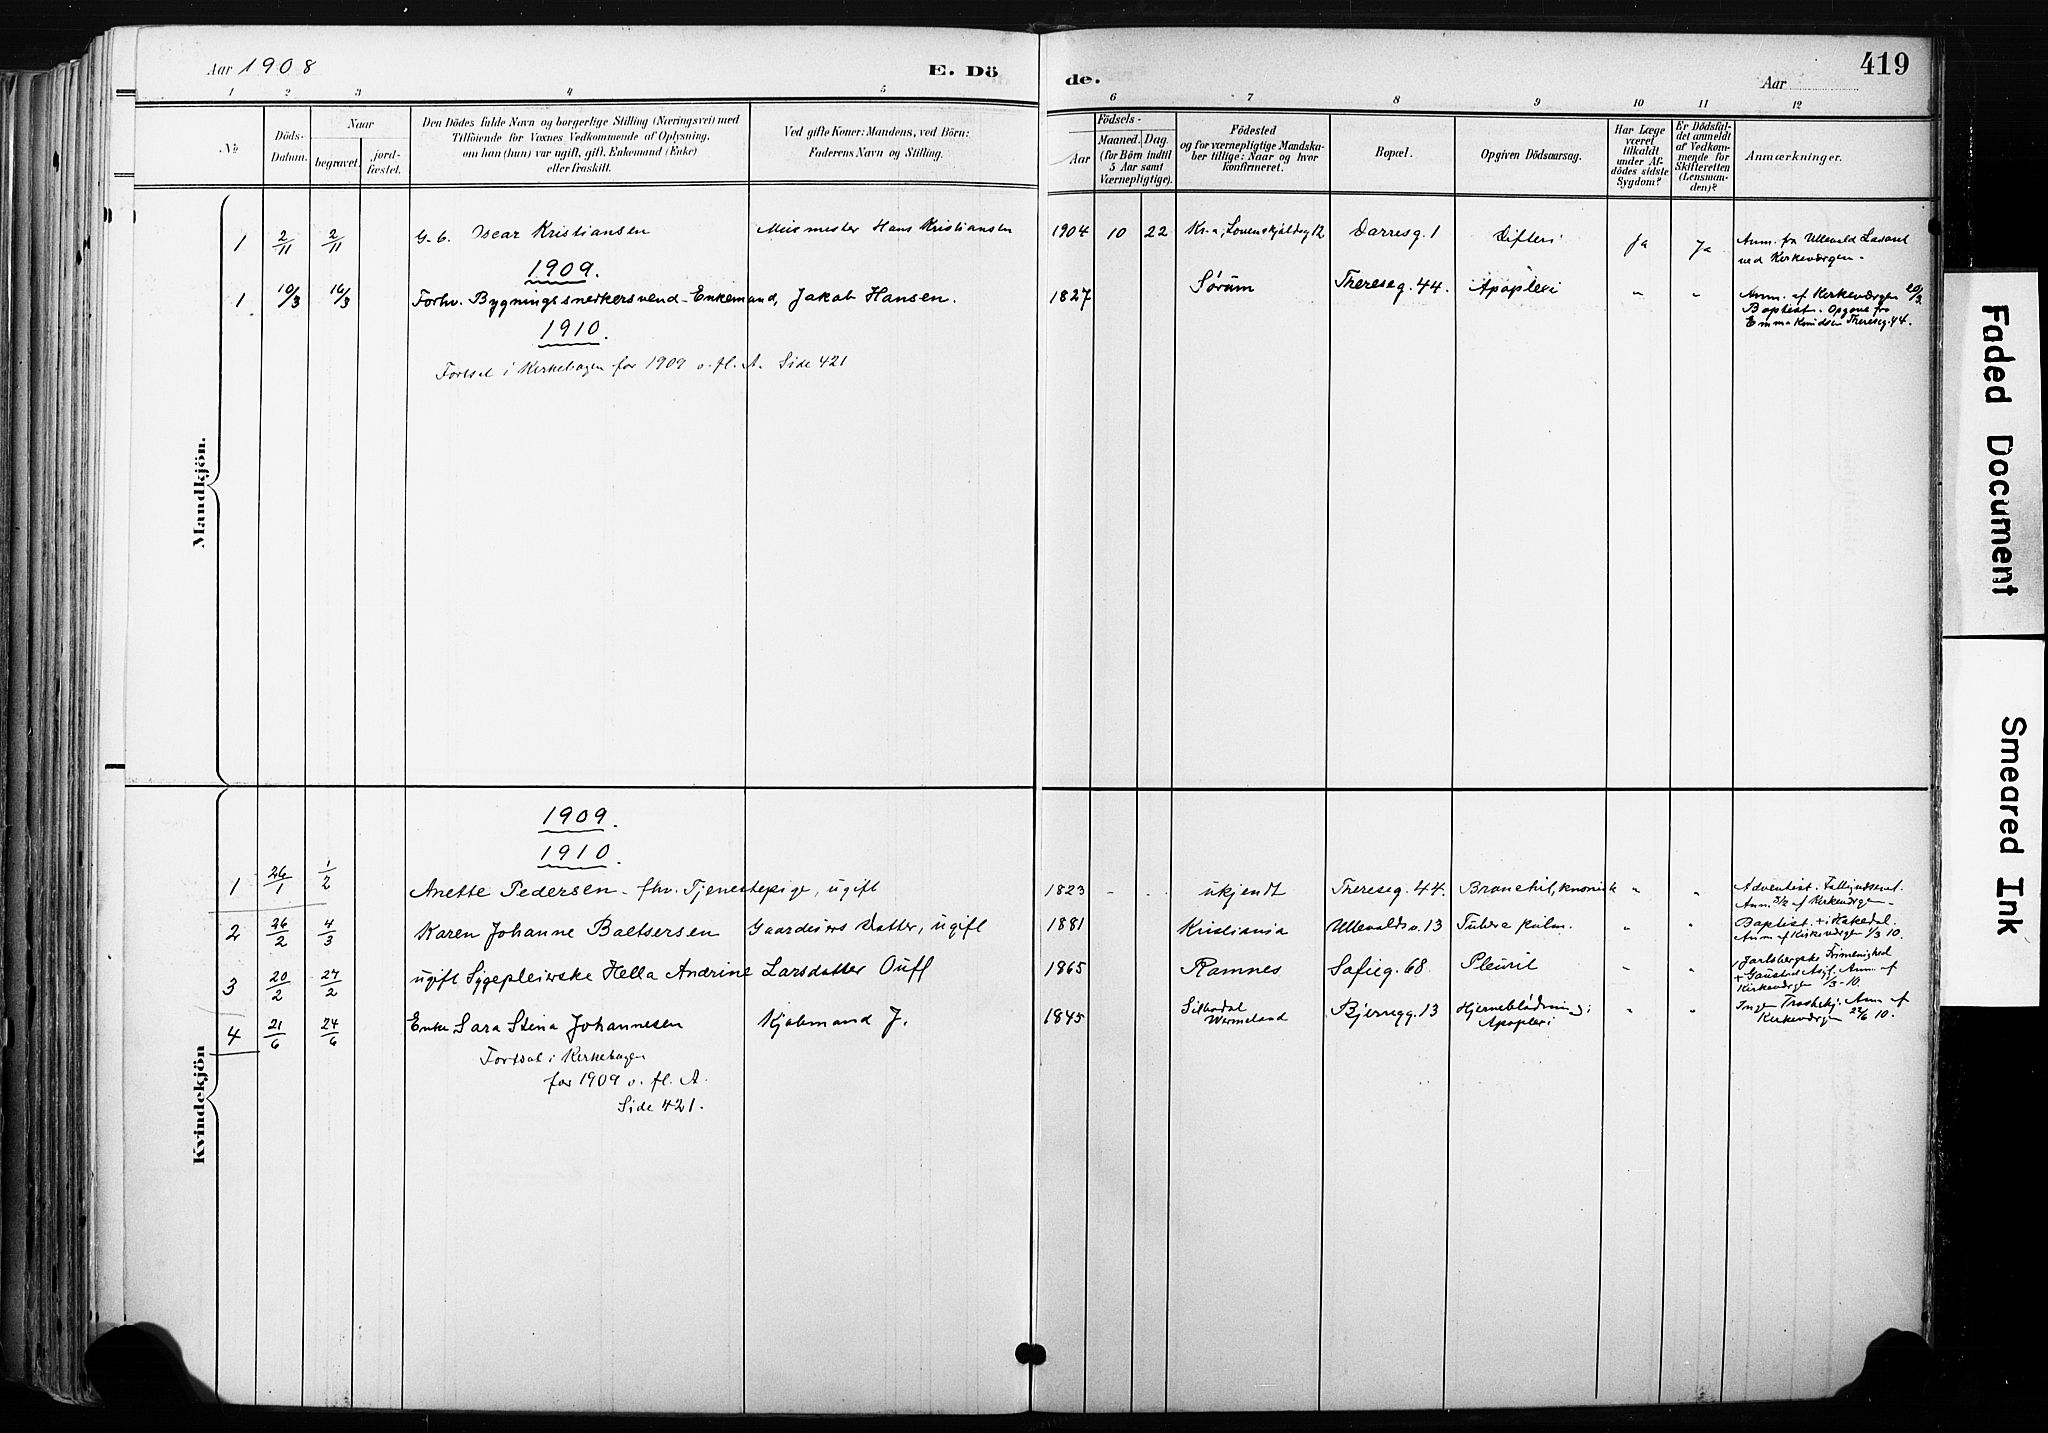 Aar 1908 E. Dö de. Aar 419
1 2 3 4 5 6 7 8 9 10 11 12
No
Döds-Datum.
Naar
begravet.
jord-fæstet.
Den Dödes fulde Navn og borgerlige Stilling (Næringsvei) med
Tilföiende for Voxnes Vedkommende af Oplysning,
om han (hun) var ugift, gift, Enkemand (Enke)
eller fraskilt.
Ved gifte Koner: Mandens, ved Börn:
Faderens Navn og Stilling.
Födsels-
Aar
Maaned. Dag.
(for Börn indtil
5 Aar samt
Værnepligtige).
Födested
og for værnepligtige Mandska-
ber tillige: Naar og hvor
konfirmeret.
Bopæl.
Opgiven Dödsaarsag.
Har Læge
været
tilkaldt
under Af-
dödes sidste
Sygdom?
Er Dödsfal-
det anmeldt
af Vedkom-
mende for
Skifteretten
(Lensman-
den)?
Anmærkninger.
Mandkjön.
1 2/11 2/11 G.b. Oscar Kristiansen Murmester Hans Kristiansen 1904 10 22 Kr.a, Lovenskjoldsg 12 Darresg. 1 Difteri Ja Ja Anm. fra Ullevold Lasaret
ved Kirkeværgen.
1909.
1 10/3 16/3 Forhv. Bygningssnedkersvend-Enkemand, Jakob Hansen. 1827 Sørum Thereseg. 44. Apoplexi " " Anm. af Kirkeværgen 20/3.
Baptist. Opgave fra
Emma Knudsen Thereseg. 44.
1910.
Fortsat i Kirkebogen for 1909 o. fl. A. Side 421
Kvindekjön
1909.
1910.
1 26/1 1/2 Anette Pedersen - fhv. Tjenestepige, ugift 1823 - - ukjendt Thereseg. 44. Bronchit, kronisk " " Adventist.
Anm. 3/2 af Kirkeværgen
2 26/2 4/3 Karen Johanne Baltsersen Gaardeiers Datter, ugift 1881 Kristiania Ullevoldsv. 13 Tuberc pulm. " " Baptist. + i Hakedal.
Anm af Kirkeværgen 1/3 10.
3 20/2 27/2 ugift Sygepleierske Hella Andrine Larsdatter Ouff 1865 Ramnes Sofieg. 68 Pleurit " " Jarlsbergske Frimenighed
+ Gaustad Asyl. Anm. af
Kirkeværgen 1/3-10.
4 21/6 24/6 Enke Sara Stina Johannesen Kjøbmand J. 1845 Silbodal
Wermeland Bjerregg. 13 Hjerneblødning;
Apoplexi " " Ingen Trosbekj. Anm. af
Kirkeværgen 22/6 10.
Fortsat i Kirkebogen
for 1909 o. fl. A.
Side 421.
Faded Document
Smeared Ink